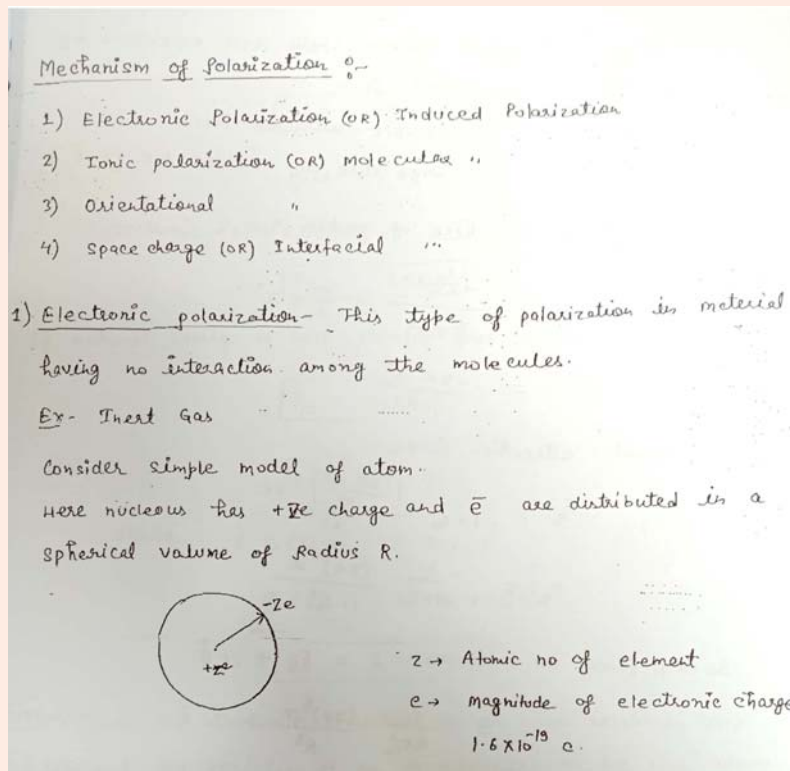 Mechanism of Polarization :-
1) Electronic Polarization (OR) Induced Polarization
2) Ionic polarization (OR) molecular "
3) Orientational "
4) Space charge (OR) Interfacial "
1) Electronic polarization- This type of polarization in material
having no interaction among the molecules.
Ex- Inert Gas
Consider simple model of atom.
Here nucleous has +Ze charge and e̅ are distributed in a
spherical valume of Radius R.
-Ze
+Ze
z → Atomic no of element
e → magnitude of electronic charge
1.6×10⁻¹⁹ c.